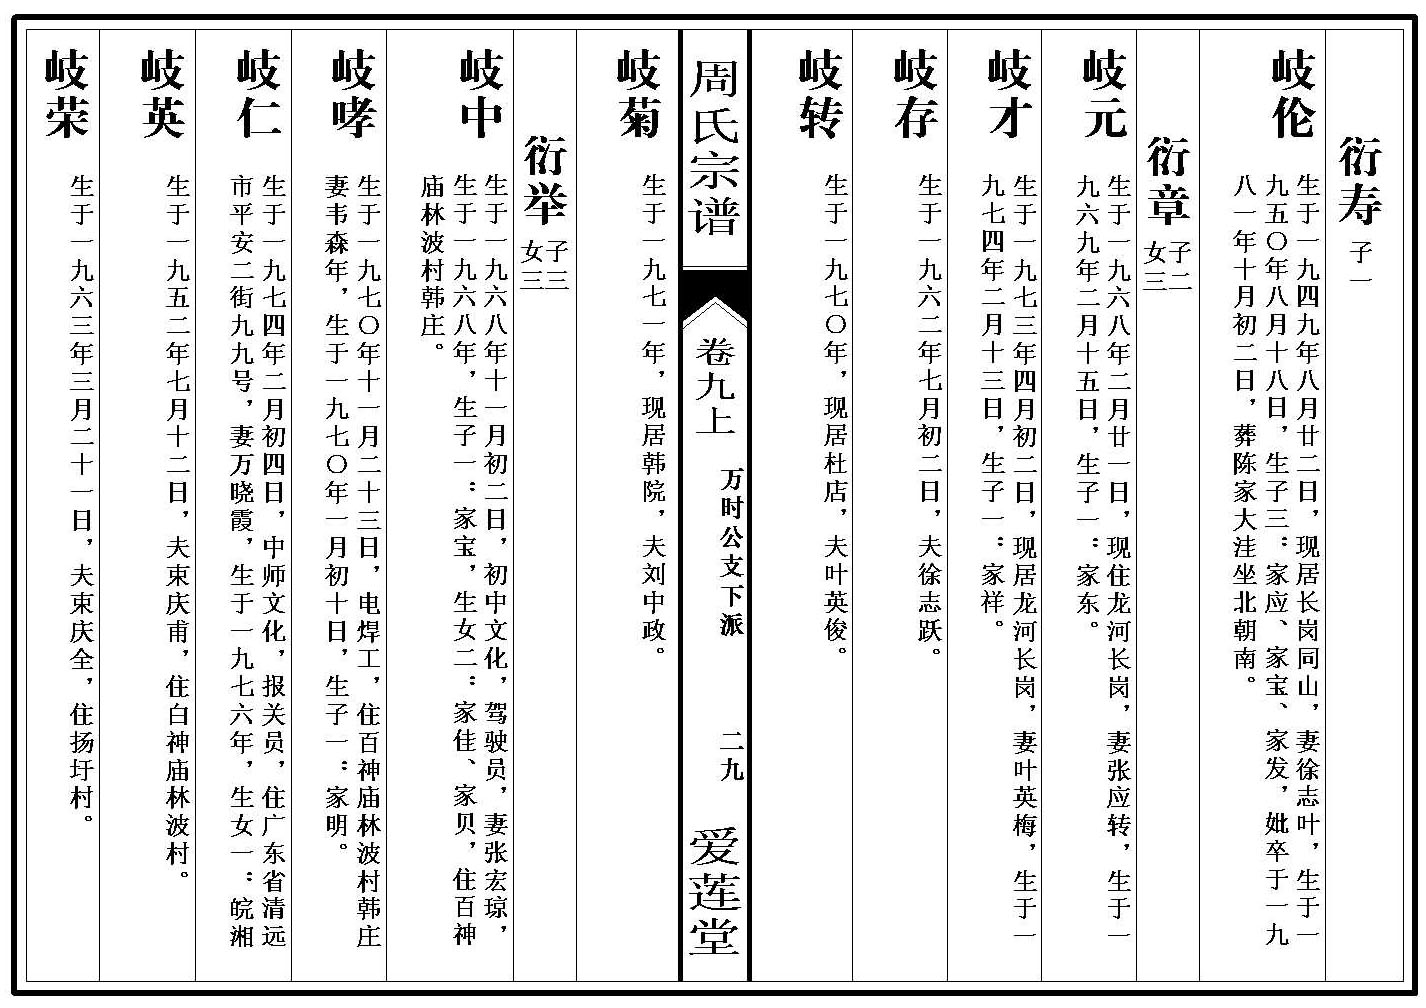 衍寿
子一
岐伦
生于一九四九年八月廿二日，现居长岗同山，妻徐志叶，生于一
九五〇年八月十八日，生子三：家应、家宝、家发，妣卒于一九
八一年十月初二日，葬陈家大洼坐北朝南。
衍章
子二
女三
岐元
生于一九六八年二月廿一日，现住龙河长岗，妻张应转，生于一
九六九年二月十五日，生子一：家东。
岐才
生于一九七三年四月初二日，现居龙河长岗，妻叶英梅，生于一
九七四年二月十三日，生子一：家祥。
岐存
生于一九六二年七月初二日，夫徐志跃。
岐转
生于一九七〇年，现居杜店，夫叶英俊。
周氏宗谱
卷九上
万时公支下派
二九
爱莲堂
岐菊
生于一九七一年，现居韩院，夫刘中政。
衍举
子三
女三
岐中
生于一九六八年十一月初二日，初中文化，驾驶员，妻张宏琼，
生于一九六八年，生子一：家宝，生女二：家佳、家贝，住百神
庙林波村韩庄。
岐哮
生于一九七〇年十一月二十三日，电焊工，住百神庙林波村韩庄
妻韦森年，生于一九七〇年一月初十日，生子一：家明。
岐仁
生于一九七四年二月初四日，中师文化，报关员，住广东省清远
市平安二街九九号，妻万晓霞，生于一九七六年，生女一：皖湘
岐英
生于一九五二年七月十二日，夫束庆甫，住白神庙林波村。
岐荣
生于一九六三年三月二十一日，夫束庆全，住扬圩村。